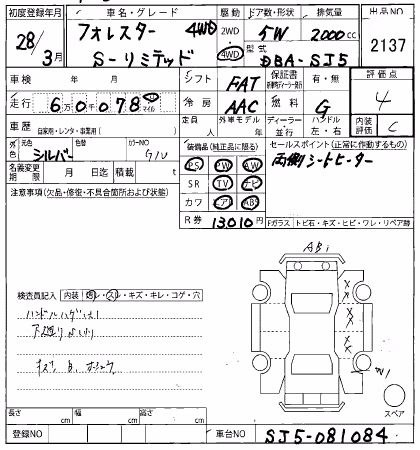 初度登録年月 車名・グレード 駆動 ドア数・形状 排気量 出品NO
28/3月 フォレスター 4WD 2WD 5W 2000cc 2137
S-リミテッド 4WD 型式 DBA-SJ5
車検 年 月 シフト FAT 保証書 有・無 評価点
走行 6万0千078 マイル 冷房 AAC 燃料 G 4
車歴 自家用・レンタ・事業用( ) 定員 人 外車モデル 年 ディーラー 並行 ハンドル 左・右 内装評価 C
外色 元色 シルバー 色替 カラーNO G1U 装備品(純正品に限る) セールスポイント(正常に作動するもの)
名義変更期限 月 日迄 積載 t PS PW AW 両側シートヒーター
注意事項(欠品・修復・不具合箇所および状態) SR TV ナビ
カワ エアB ABS
R券 13,010円 Fガラス トビ石・キズ・ヒビ・ワレ・リペア跡
検査員記入 内装 汚レ・スレ・キズ・キレ・コゲ・穴
ハンドル
下廻り
キズ
長さ cm 幅 cm 高さ cm スペア
登録NO 車台NO SJ5-081084